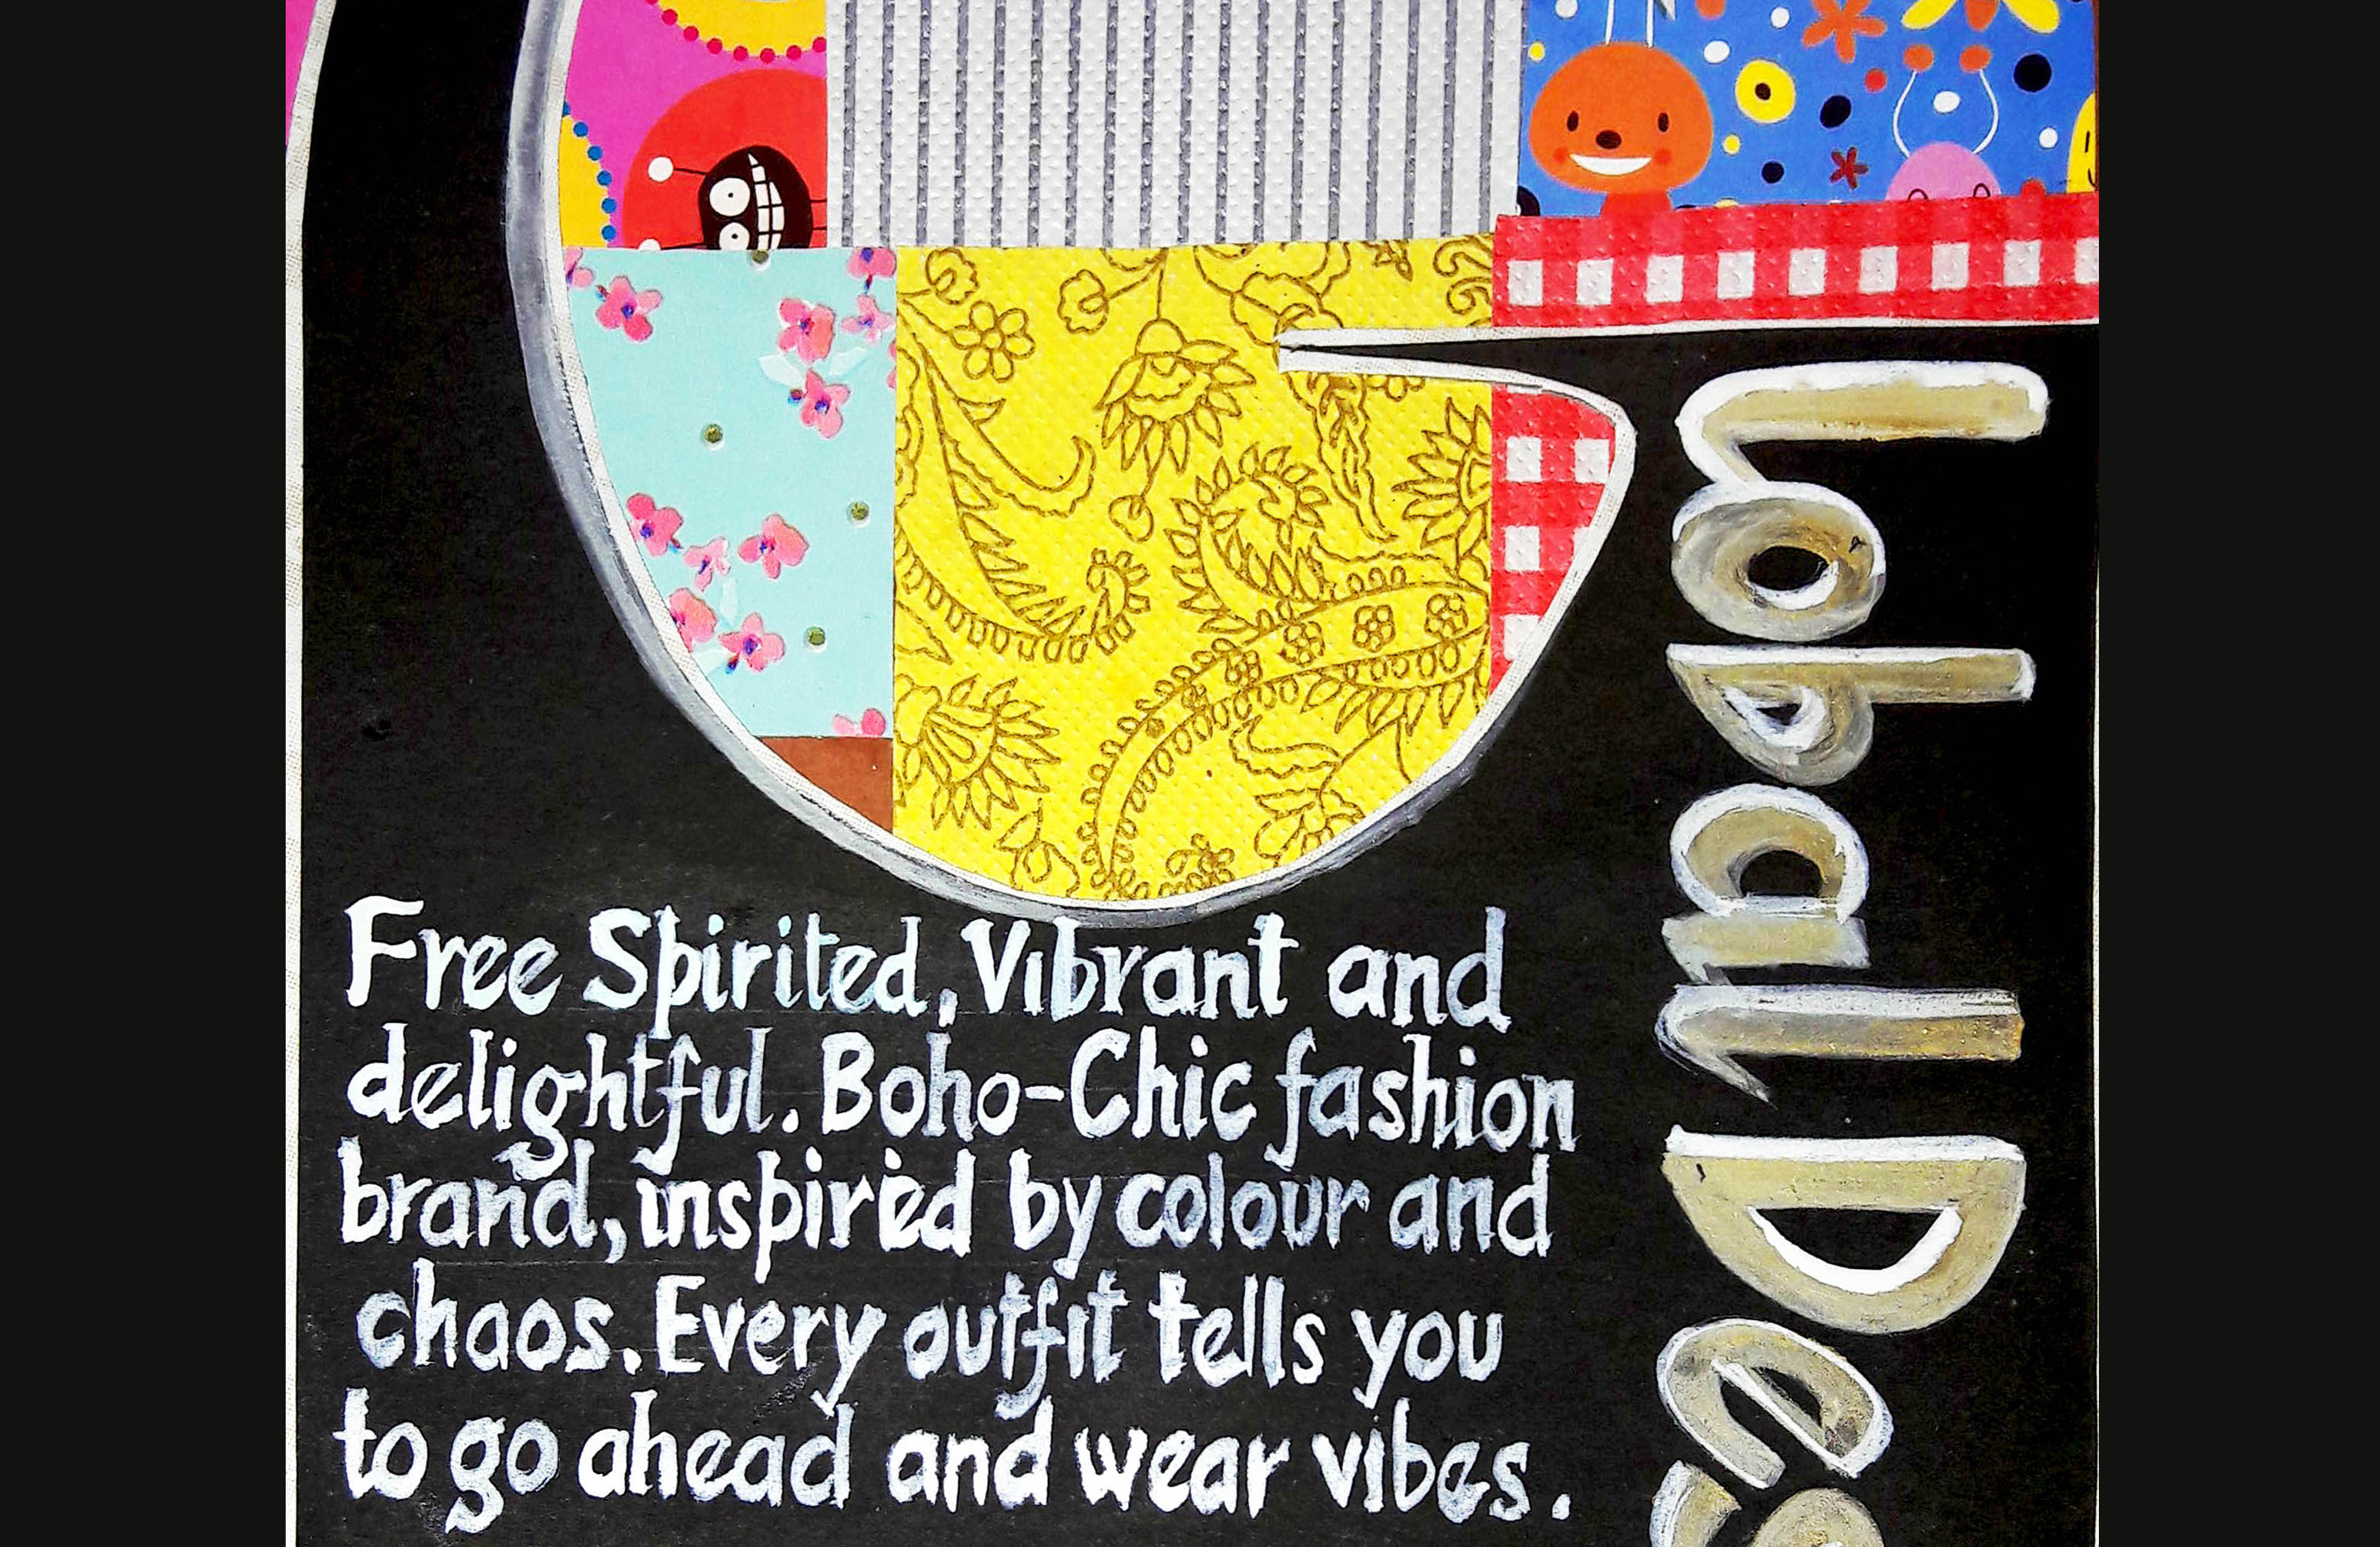 Global Des
Free Spirited, Vibrant and
delightful. Boho-Chic fashion
brand, inspired by colour and
chaos. Every outfit tells you
to go ahead and wear vibes.